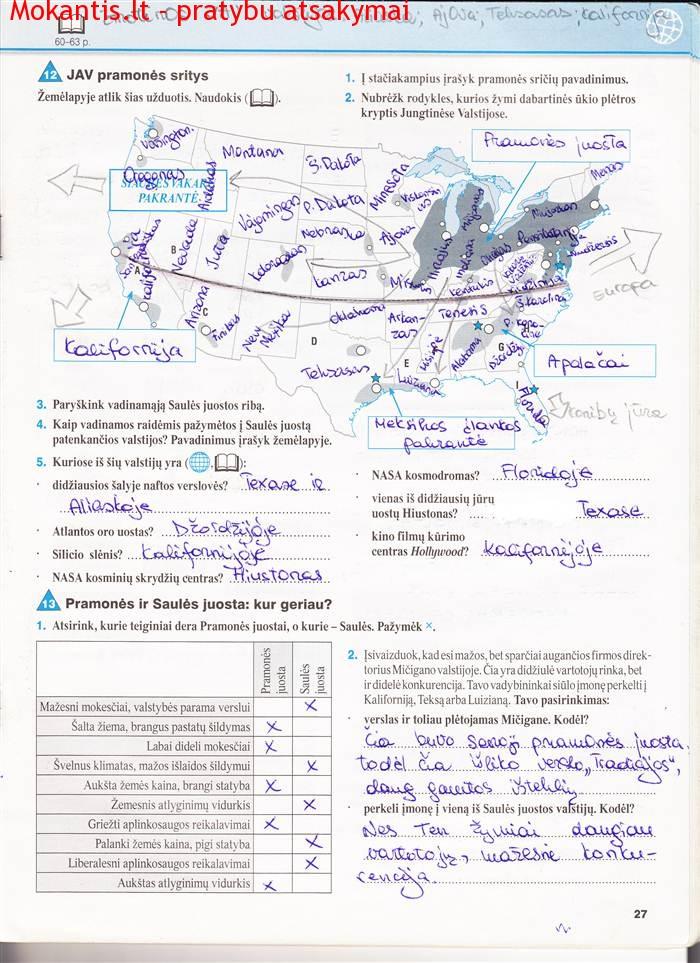 Mokantis.lt - pratybu atsakymai
Ajova, Teksasas, Kalifornija
60–63 p.
12 JAV pramonės sritys
Žemėlapyje atlik šias užduotis. Naudokis ( ).
1. Į stačiakampius įrašyk pramonės sričių pavadinimus.
2. Nubrėžk rodykles, kurios žymi dabartinės ūkio plėtros
kryptis Jungtinėse Valstijose.
Pramonės juosta
Vašington.
Montana
Š. Dakota
Minesota
Oregonas
ŠIAURĖS VAKARŲ
PAKRANTĖ
Aidahas
Vajomingas
P. Dakota
Nebraska
Ajova
Nevada
Juta
Koloradas
Kanzas
Kalifornija
Arizona
Naujoji
Meksika
Oklahoma
Arkan-
zas
Tenesis
Kentukis
Š. Karolina
Alabama
Džordžija
Teksasas
Luiziana
Florida
Europa
A
B
C
D
E
G
I
Kalifornija
Apalačai
Meksikos įlankos
pakrantė
Karibų jūra
3. Paryškink vadinamąją Saulės juostos ribą.
4. Kaip vadinamos raidėmis pažymėtos į Saulės juostą
patenkančios valstijos? Pavadinimus įrašyk žemėlapyje.
5. Kuriose iš šių valstijų yra ( , ):
· didžiausios šalyje naftos verslovės? Texase ir
Aliaskoje
· Atlantos oro uostas? Džordžijoje
· Silicio slėnis? Kalifornijoje
· NASA kosminių skrydžių centras? Hiustonas
· NASA kosmodromas? Floridoje
· vienas iš didžiausių jūrų
uostų Hiustonas? Texase
· kino filmų kūrimo
centras Hollywood? Kalifornijoje
13 Pramonės ir Saulės juosta: kur geriau?
1. Atsirink, kurie teiginiai dera Pramonės juostai, o kurie – Saulės. Pažymėk ×.
Pramonės juosta
Saulės juosta
Mažesni mokesčiai, valstybės parama verslui X
Šalta žiema, brangus pastatų šildymas X
Labai dideli mokesčiai X
Švelnus klimatas, mažos išlaidos šildymui X
Aukšta žemės kaina, brangi statyba X
Žemesnis atlyginimų vidurkis X
Griežti aplinkosaugos reikalavimai X
Palanki žemės kaina, pigi statyba X
Liberalesni aplinkosaugos reikalavimai X
Aukštas atlyginimų vidurkis X
2. Įsivaizduok, kad esi mažos, bet sparčiai augančios firmos direk-
torius Mičigano valstijoje. Čia yra didžiulė vartotojų rinka, bet
ir didelė konkurencija. Tavo vadybininkai siūlo įmonę perkelti į
Kaliforniją, Teksą arba Luizianą. Tavo pasirinkimas:
· verslas ir toliau plėtojamas Mičigane. Kodėl?
Čia buvo senoji pramonės juosta,
todėl čia išliko verslo „Tradicijos",
daug gamtos išteklių
· perkeli įmonę į vieną iš Saulės juostos valstijų. Kodėl?
Nes Ten žymiai daugiau
vartotojų, mažesnė konku-
rencija.
27